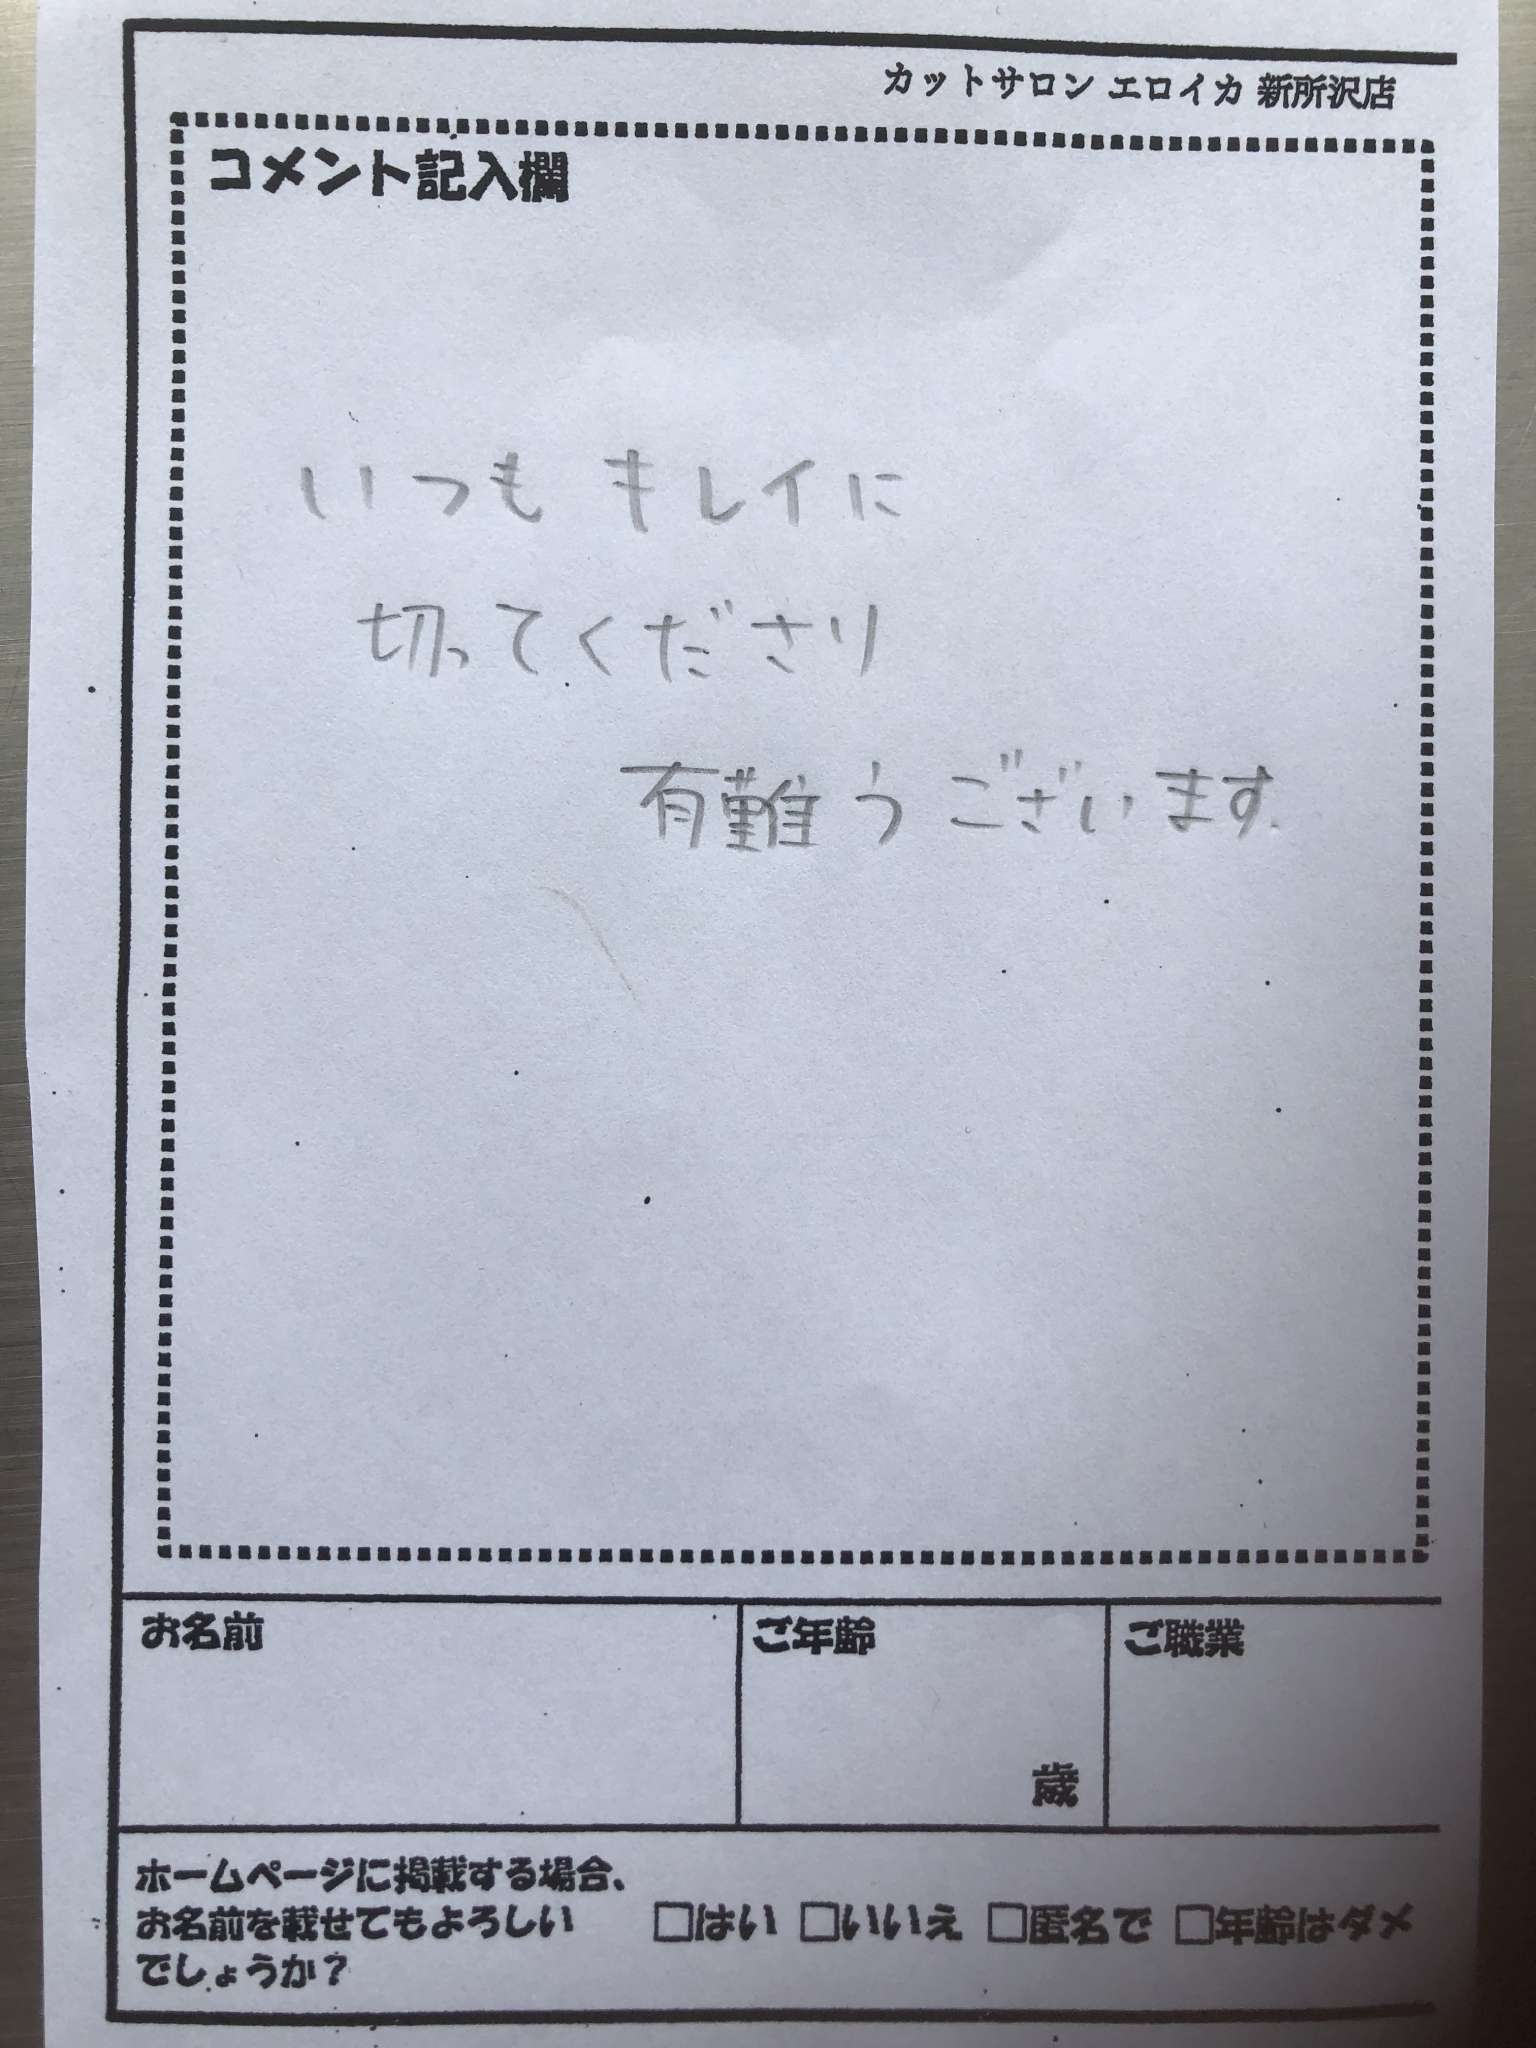 カットサロン エロイカ 新所沢店
コメント記入欄
いつも キレイに
切ってくださり
有難うございます.
お名前
ご年齢
ご職業
歳
ホームページに掲載する場合、
お名前を載せてもよろしい
でしょうか?
□はい □いいえ □匿名で □年齢はダメ